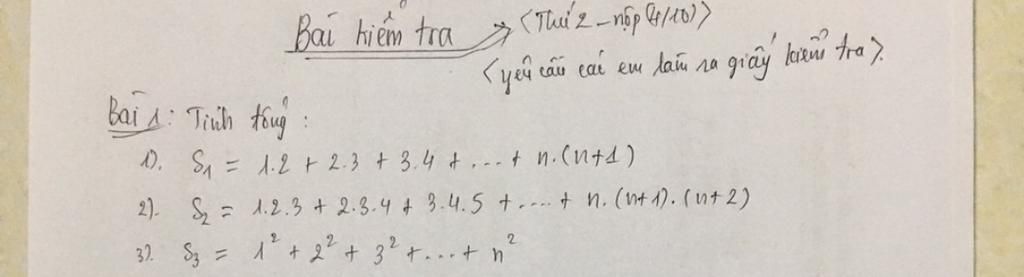 Bài kiểm tra → <Thứ 2 – nộp (4/10)>
<yêu cầu các em làm ra giấy kiểm tra>.
Bài 1: Tính tổng:
1). S₁ = 1.2 + 2.3 + 3.4 + ... + n.(n+1)
2). S₂ = 1.2.3 + 2.3.4 + 3.4.5 + .... + n.(n+1).(n+2)
3). S₃ = 1² + 2² + 3² + ... + n²